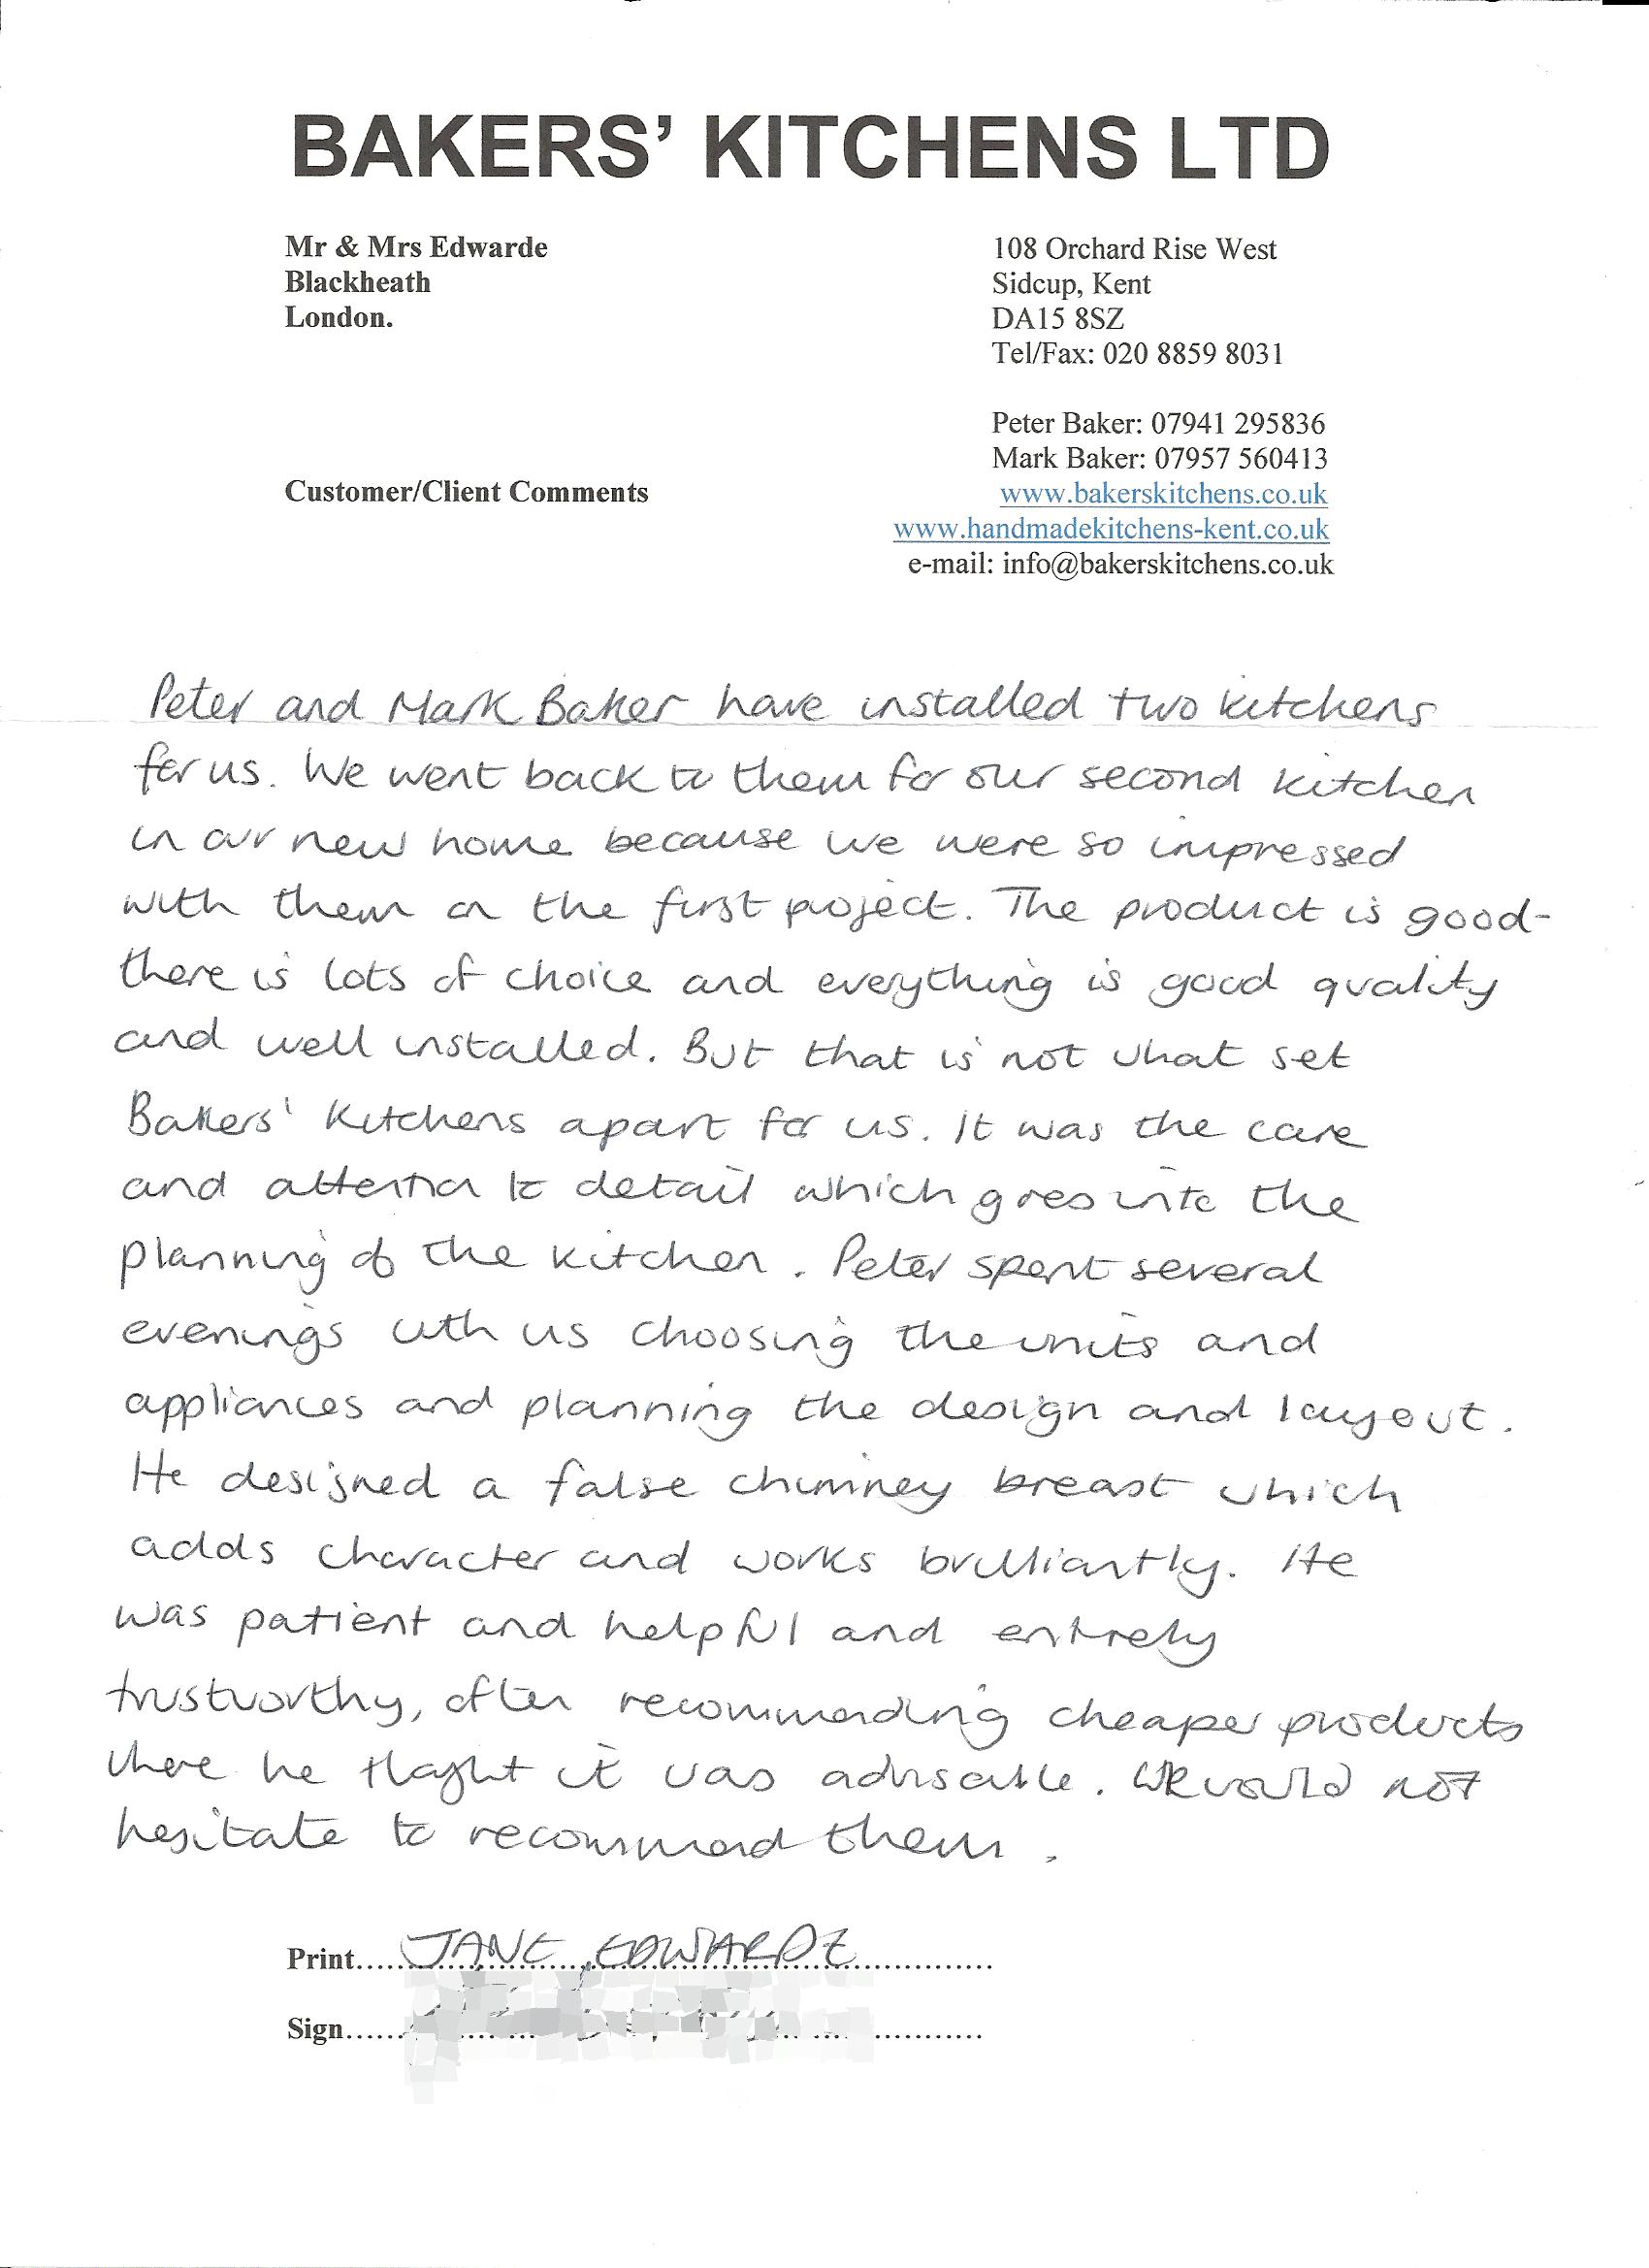 BAKERS' KITCHENS LTD
Mr & Mrs Edwarde
Blackheath
London.
108 Orchard Rise West
Sidcup, Kent
DA15 8SZ
Tel/Fax: 020 8859 8031
Peter Baker: 07941 295836
Mark Baker: 07957 560413
Customer/Client Comments
www.bakerskitchens.co.uk
www.handmadekitchens-kent.co.uk
e-mail: info@bakerskitchens.co.uk
Peter and Mark Baker have installed two kitchens
for us. We went back to them for our second kitchen
in our new home because we were so impressed
with them on the first project. The product is good-
there is lots of choice and everything is good quality
and well installed. But that is not what set
Bakers' Kitchens apart for us. It was the care
and attention to detail which goes into the
planning of the kitchen. Peter spent several
evenings with us choosing the units and
appliances and planning the design and layout.
He designed a false chimney breast which
adds character and works brilliantly. He
was patient and helpful and entirely
trustworthy, often recommending cheaper products
where he thought it was advisable. We would not
hesitate to recommend them.
Print.....JANE EDWARDE...............
Sign......